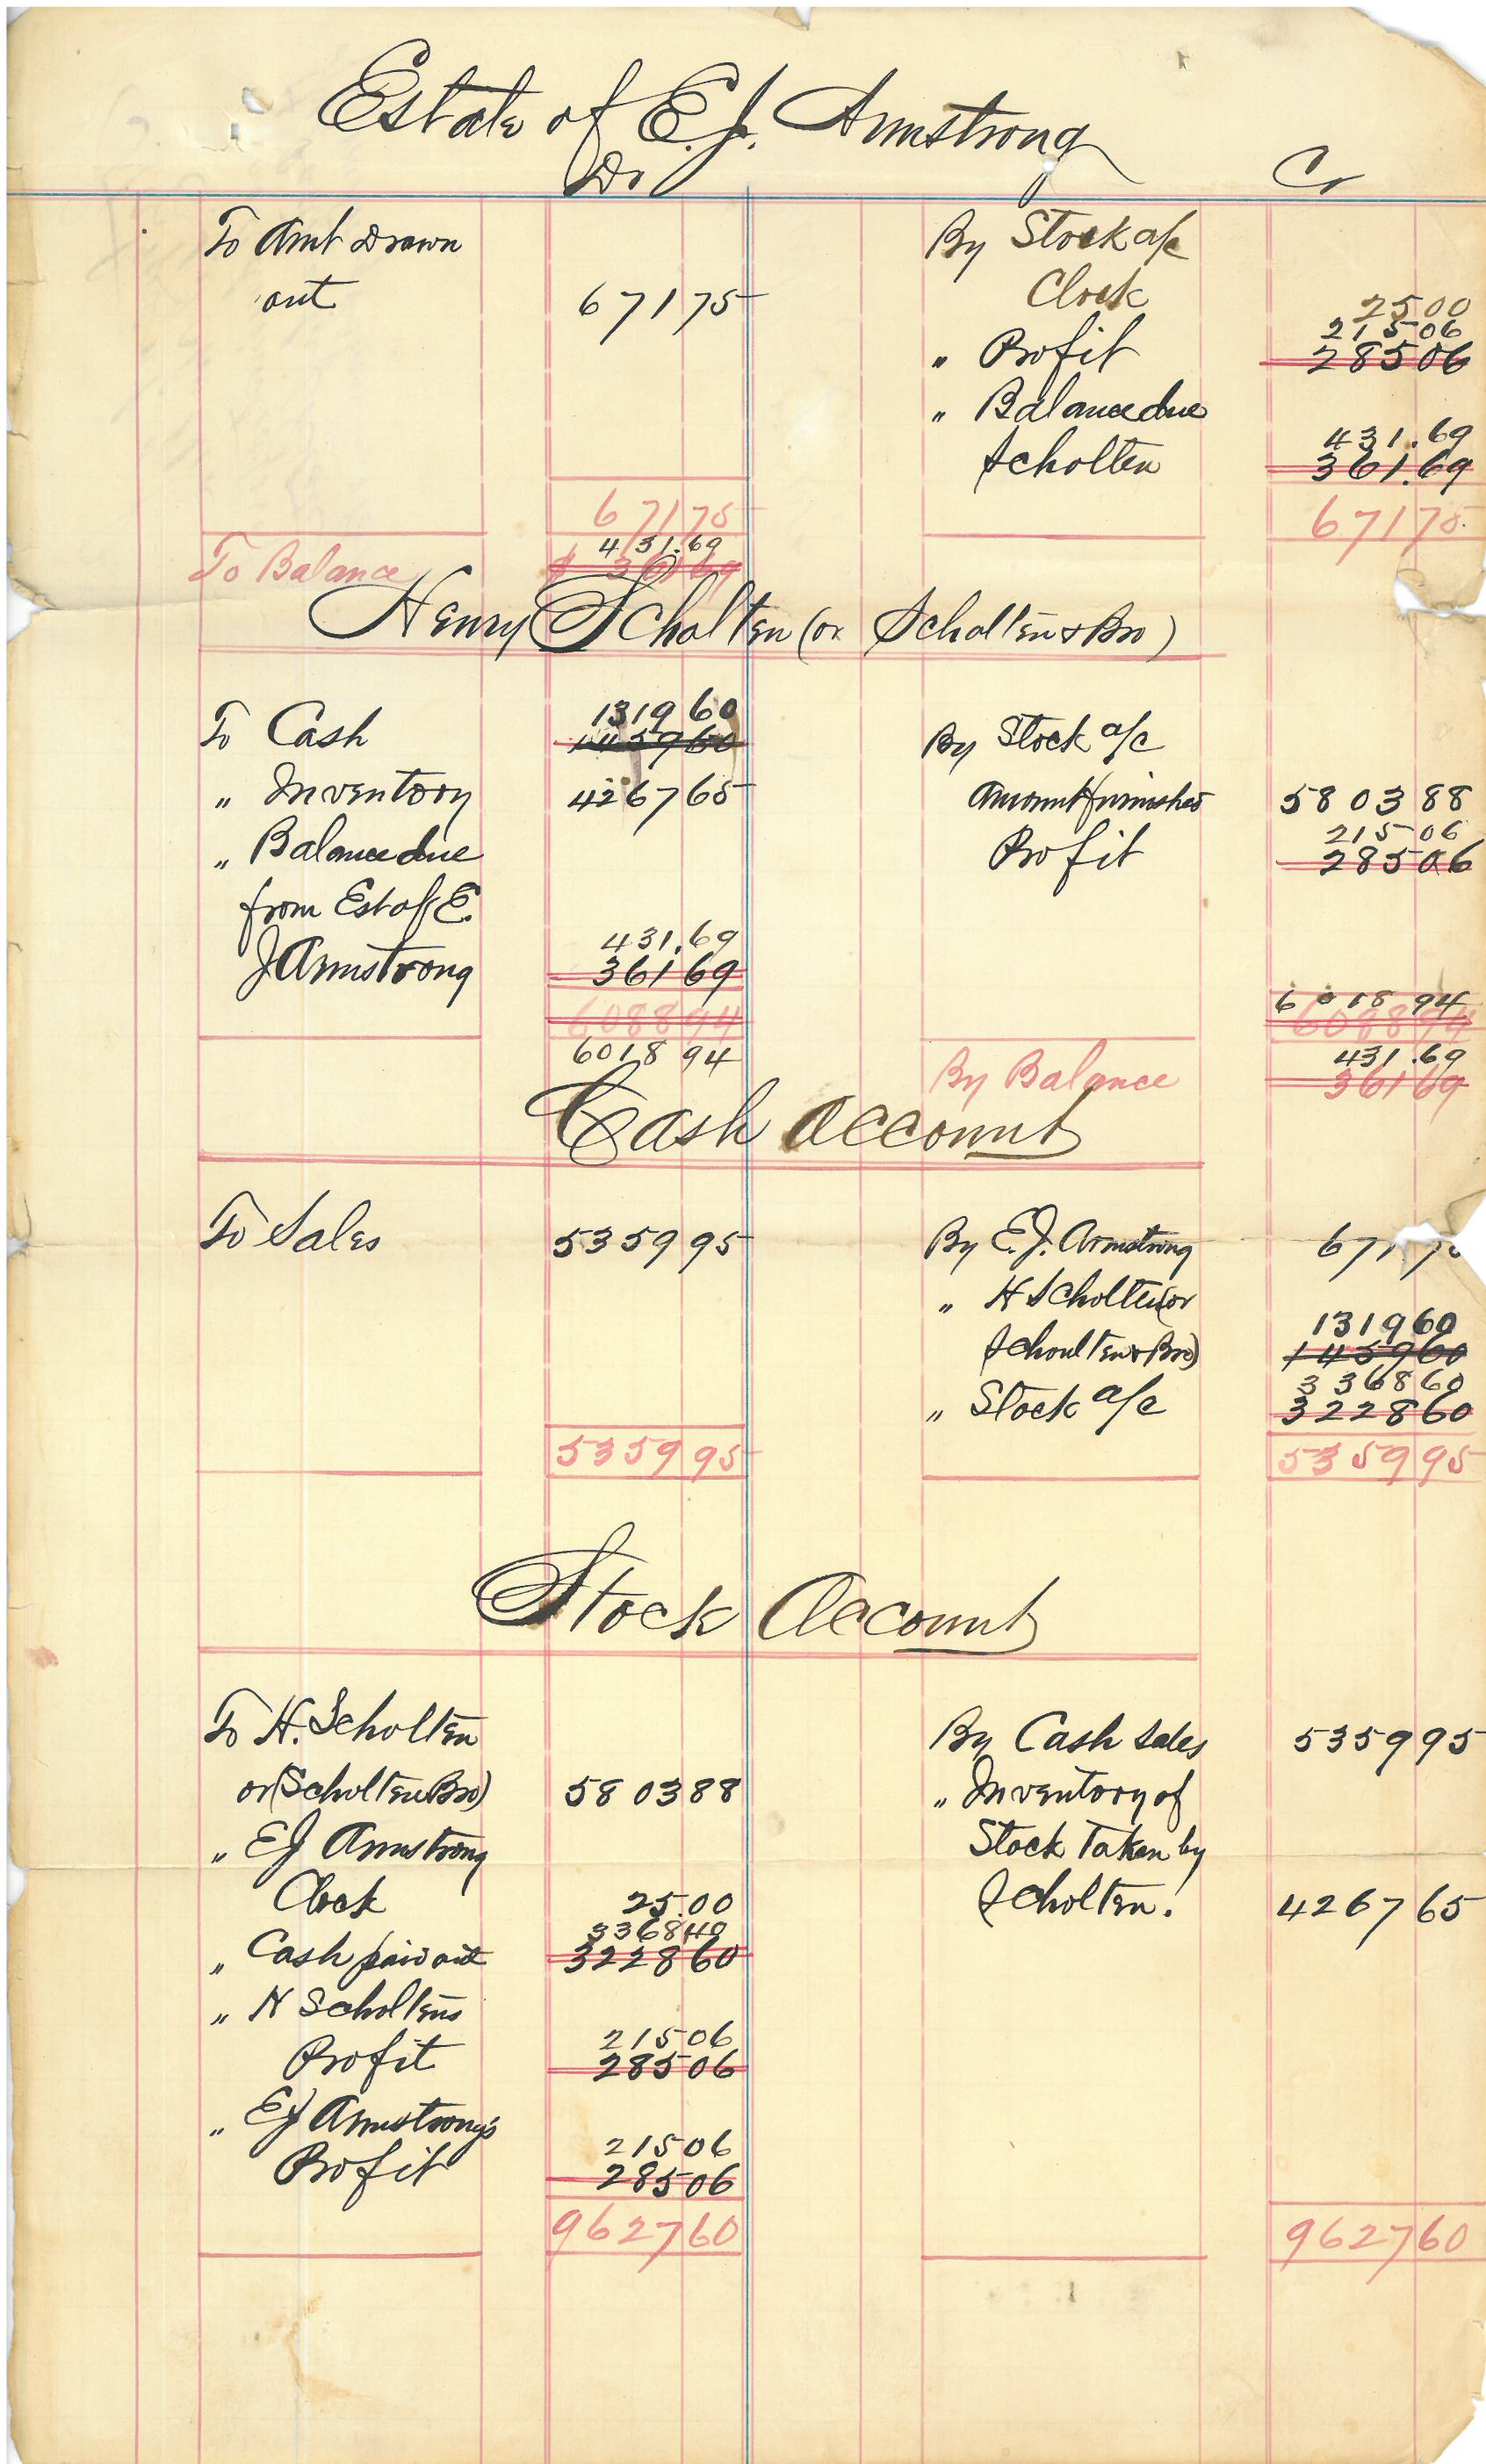 Estate of E. J. Armstrong
Dr Cr
To Amt Drawn By Stock a/c
out 671 75 Clock 25 00
215 06
" Profit 285 06
" Balance due
431.69
Scholten 361.69
671 75 671 75
431.69
To Balance $ 361 69
Henry Scholten (or Scholten & Bro)
1319 60
To Cash 1459 60 By Stock a/c
" Inventory 4267 65 Amount furnished 5803 88
215 06
" Balance due Profit 285 06
from Est of E.
431.69
J Armstrong 361 69
6018 94
6088 94 6088 94
6018 94 431.69
By Balance 361 69
Cash Account
To Sales 5359 95 By E. J. Armstrong 671 7
" H Scholten (or
1319 60
Schoulten & Bro) 1459 60
3368 60
" Stock a/c 3228 60
5359 95 5359 95
Stock Account
To H. Scholten By Cash Sales 5359 95
or (Scholten Bro) 5803 88 " Inventory of
" E J Armstrong Stock Taken by
Clock 25.00 Scholten. 4267 65
3368
" Cash paid out 3228 60
" H Scholtens
215 06
Profit 285 06
" E J Armstrong's
215 06
Profit 285 06
9627 60 9627 60